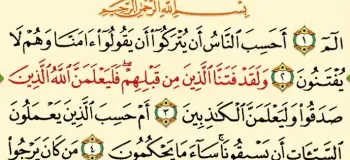 بِسْمِ اللَّهِ الرَّحْمَٰنِ الرَّحِيمِ
الٓمٓ ۝١ أَحَسِبَ النَّاسُ أَن يُتْرَكُوٓا۟ أَن يَقُولُوٓا۟ ءَامَنَّا وَهُمْ لَا
يُفْتَنُونَ ۝٢ وَلَقَدْ فَتَنَّا الَّذِينَ مِن قَبْلِهِمْ ۖ فَلَيَعْلَمَنَّ اللَّهُ الَّذِينَ
صَدَقُوا۟ وَلَيَعْلَمَنَّ الْكَٰذِبِينَ ۝٣ أَمْ حَسِبَ الَّذِينَ يَعْمَلُونَ
السَّيِّـَٔاتِ أَن يَسْبِقُونَا ۚ سَآءَ مَا يَحْكُمُونَ ۝٤ مَن كَانَ يَرْجُوا۟